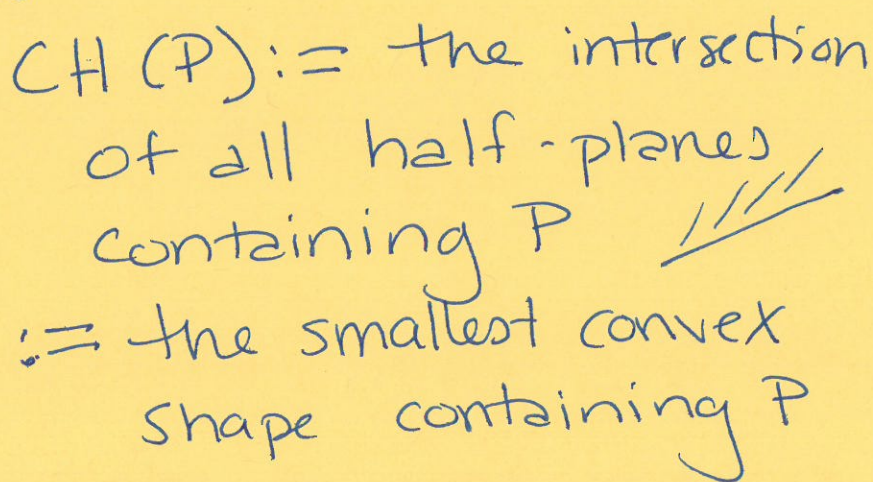 CH (P) := the intersection
of all half-planes
containing P
:= the smallest convex
shape containing P